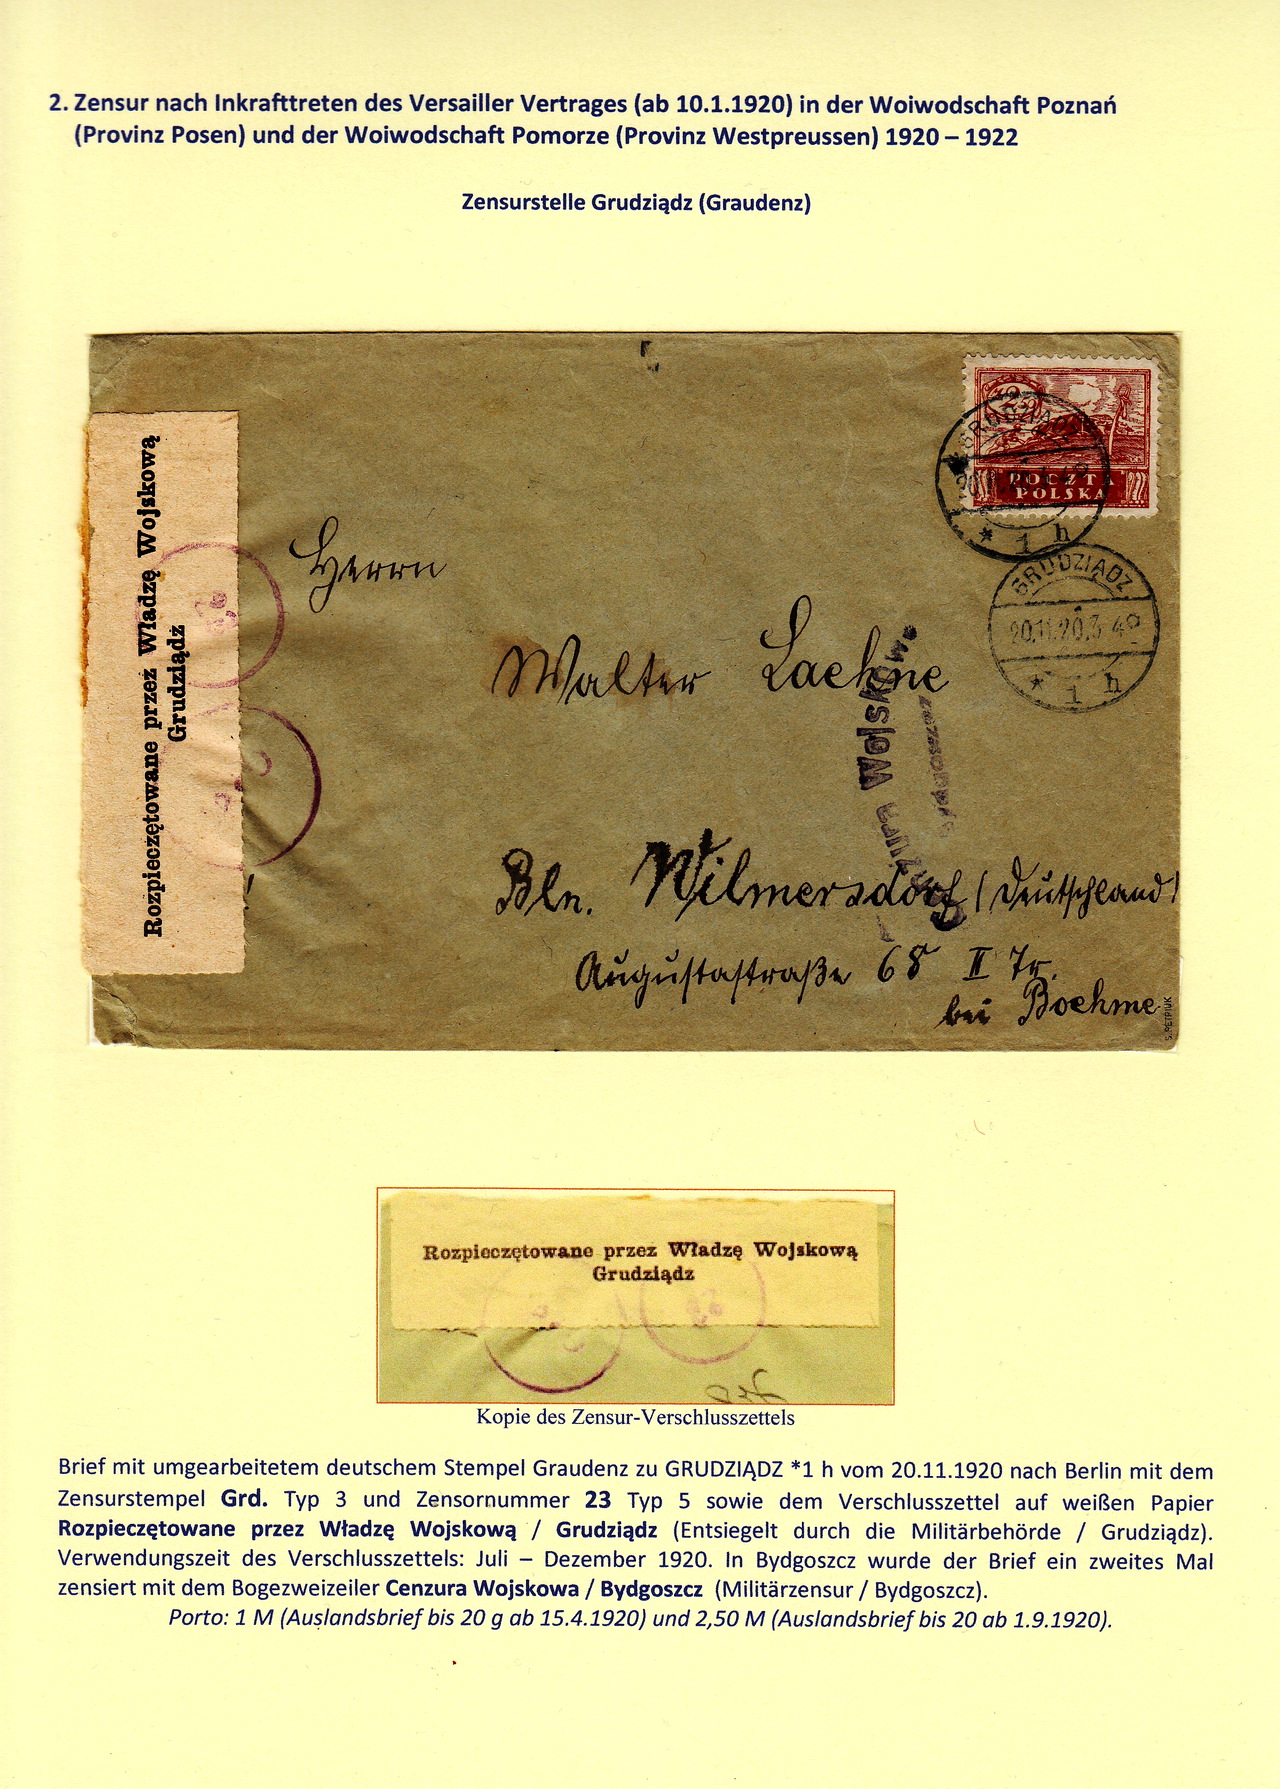 2. Zensur nach Inkrafttreten des Versailler Vertrages (ab 10.1.1920) in der Woiwodschaft Poznań
(Provinz Posen) und der Woiwodschaft Pomorze (Provinz Westpreussen) 1920 – 1922
Zensurstelle Grudziądz (Graudenz)
Rozpieczętowane przez Władzę Wojskową
Grudziądz
POCZTA
POLSKA
GRUDZIĄDZ
* 1 h
GRUDZIĄDZ
20.11.20.3-4
* 1 h
Herrn
Walter Laehne
Wojskowa
Bln. Wilmersdorf (Deutschland)
Augustastraße 68 II Tr.
bei Boehme
S. PETRIUK
Rozpieczętowane przez Władzę Wojskową
Grudziądz
Kopie des Zensur-Verschlusszettels
Brief mit umgearbeitetem deutschem Stempel Graudenz zu GRUDZIĄDZ *1 h vom 20.11.1920 nach Berlin mit dem
Zensurstempel Grd. Typ 3 und Zensornummer 23 Typ 5 sowie dem Verschlusszettel auf weißen Papier
Rozpieczętowane przez Władzę Wojskową / Grudziądz (Entsiegelt durch die Militärbehörde / Grudziądz).
Verwendungszeit des Verschlusszettels: Juli – Dezember 1920. In Bydgoszcz wurde der Brief ein zweites Mal
zensiert mit dem Bogezweizeiler Cenzura Wojskowa / Bydgoszcz (Militärzensur / Bydgoszcz).
Porto: 1 M (Auslandsbrief bis 20 g ab 15.4.1920) und 2,50 M (Auslandsbrief bis 20 ab 1.9.1920).